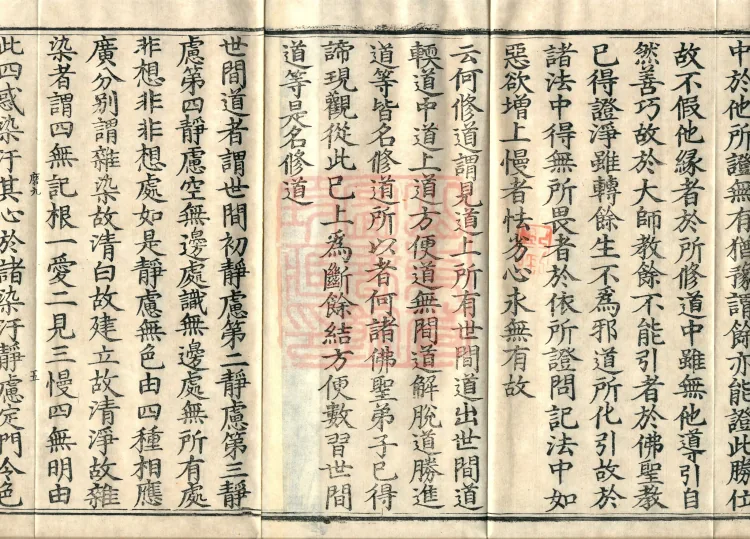 中於他所證無有猶豫謂餘亦能證此勝
故不假他緣者於所修道中雖無他導引自
然善巧故於大師教餘不能引者於佛聖教
已得證淨雖轉餘生不爲邪道所化引故於
諸法中得無所畏者於依所證問記法中如
惡欲增上慢者怯劣心永無有故
云何修道謂見道上所有世間道出世間道
輭道中道上道方便道無間道解脫道勝進
道等皆名修道所以者何諸佛聖弟子已得
諦現觀從此已上爲斷餘結方便數習世間
道等是名修道
世間道者謂世間初靜慮第二靜慮第三靜
慮第四靜慮空無邊處識無邊處無所有處
非想非非想處如是靜慮無色由四種相應
廣分別謂雜染故清白故建立故清淨故雜
染者謂四無記根一愛二見三慢四無明由
五
此四惑染汙其心於諸染汙靜慮定門令色